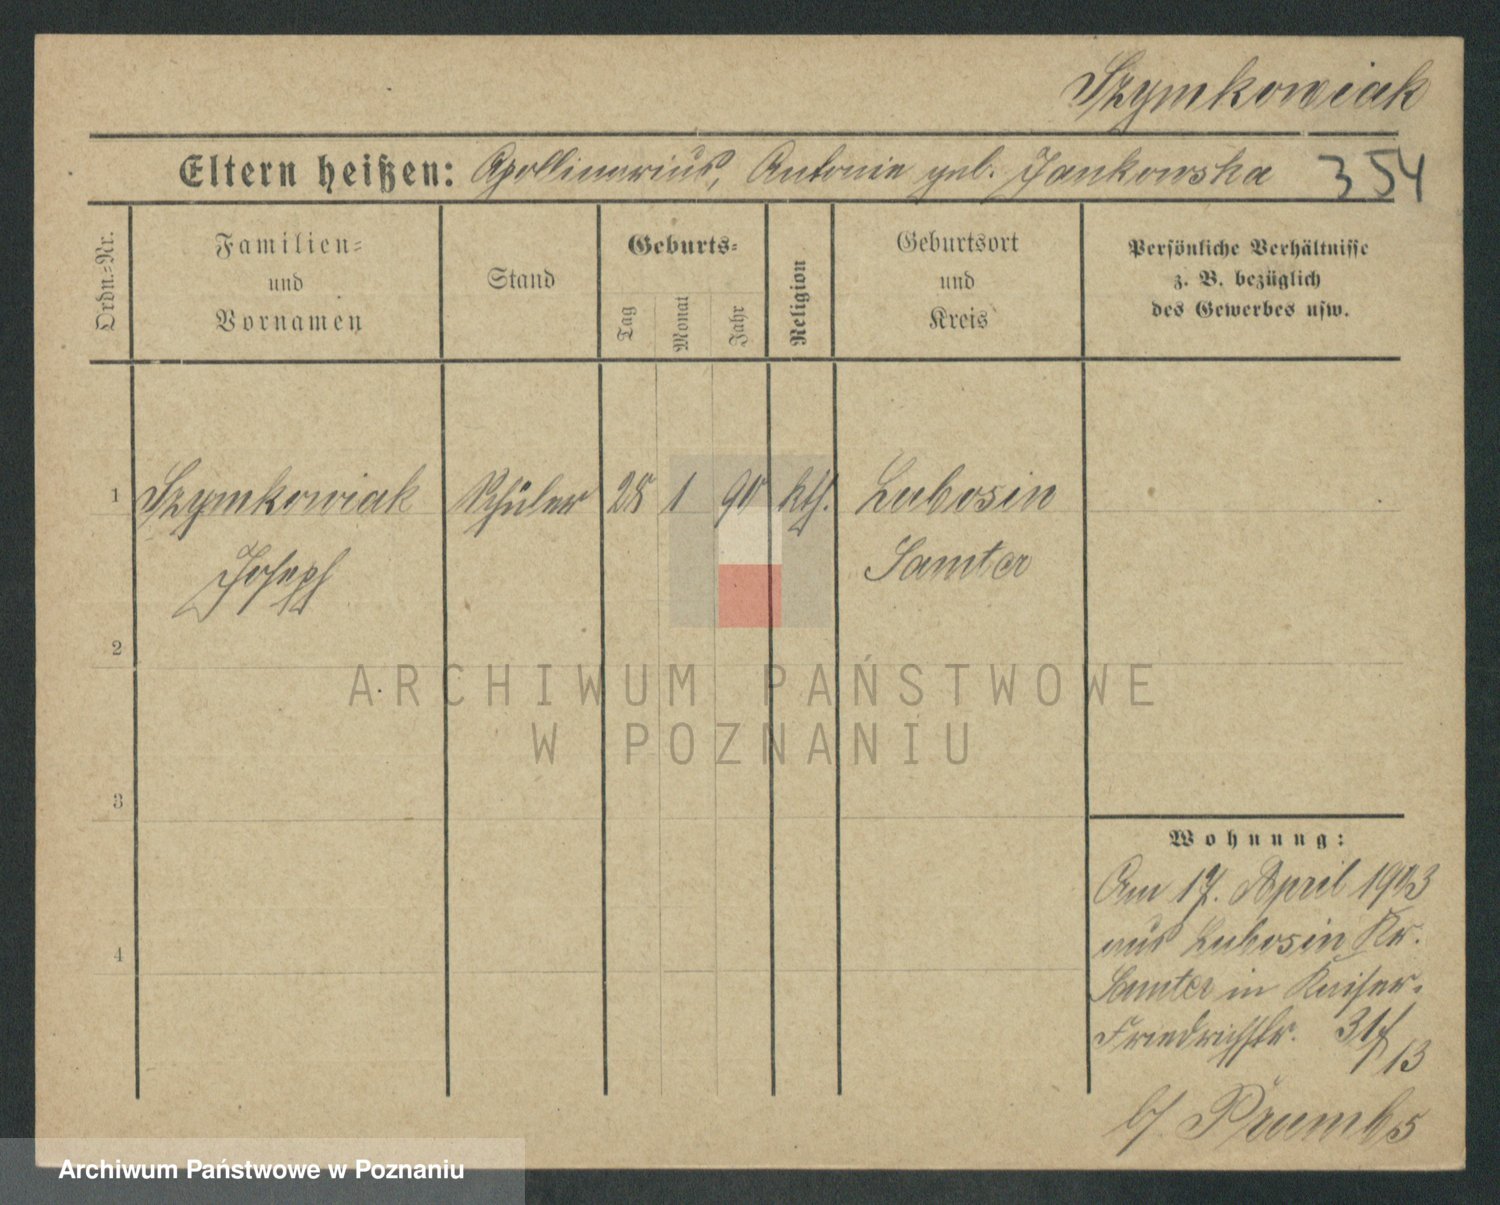 Szymkowiak
Eltern heißen: Apollinarius, Antonie geb. Jankowska 354
Ordn.=Nr.
Familien=
und
Vornamen
Stand
Geburts=
Tag
Monat
Jahr
Religion
Geburtsort
und
Kreis
Persönliche Verhältnisse
z. B. bezüglich
des Gewerbes usw.
1 Szymkowiak Schüler 28 1 90 kth. Lubosin
Joseph Samter
2
ARCHIWUM PAŃSTWOWE
W POZNANIU
3
Wohnung:
Am 17. April 1903
aus Lubosin Kr.
4
Samter in Kaiser-
Friedrichstr. 31
13
b/.
Archiwum Państwowe w Poznaniu